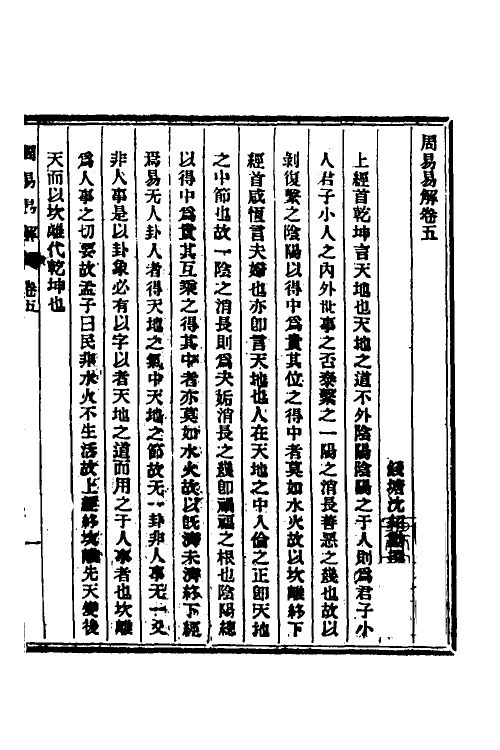 周易易解卷五
錢塘沈
上經首乾坤言天地也天地之道不外陰陽陰陽之于人則爲君子小
人君子小人之內外世事之否泰繫之一陽之消長善惡之幾也故以
剝復繫之陰陽以得中爲貴其位之得中者莫如水火故以坎離終下
經首咸恆言夫婦也亦卽言天地也人在天地之中人倫之正卽天地
之中節也故一陰之消長則爲夬姤消長之幾卽禍福之根也陰陽總
以得中爲貴其互乘之得其中者亦莫如水火故以旣濟未濟終下經
焉易无人卦人者得天地之氣中天地之節故无一卦非人事无一爻
非人事是以卦象必有以字以者天地之道而用之于人事者也坎離
爲人事之切要故孟子曰民非水火不生活故上經終坎離先天變後
天而以坎離代乾坤也
周易易解
卷五
一